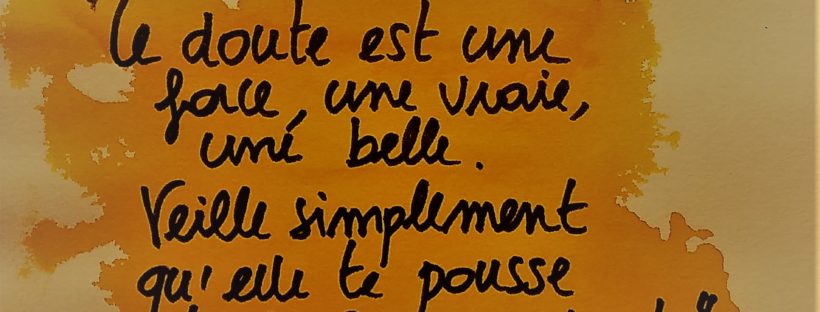 "Le doute est une
force, une vraie,
une belle.
Veille simplement
qu'elle te pousse
"